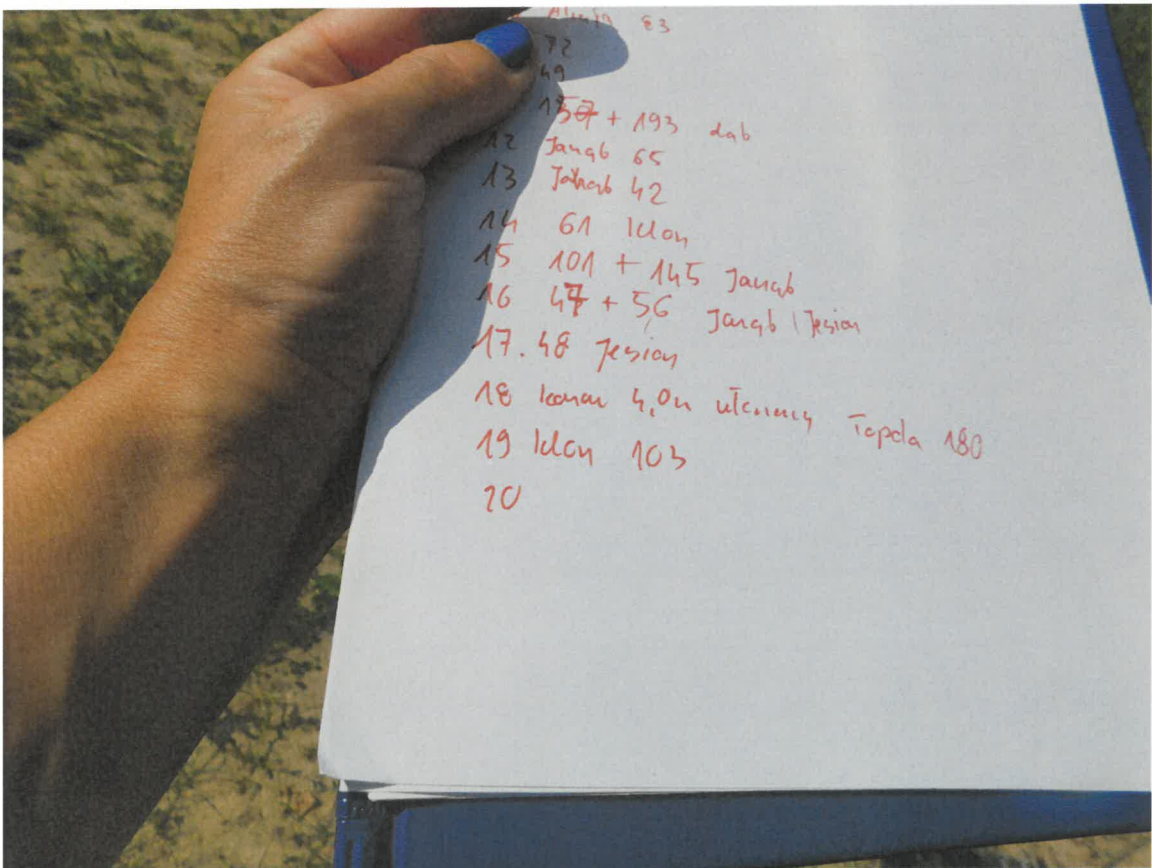 83
72
49
157 + 193 dąb
12 Jarząb 65
13 Jarząb 42
14 61 klon
15 101 + 145 Jarząb
16 47 + 56 Jarząb | Jesion
17. 48 jesion
18 konar 4,0m Topola 180
19 klon 103
20